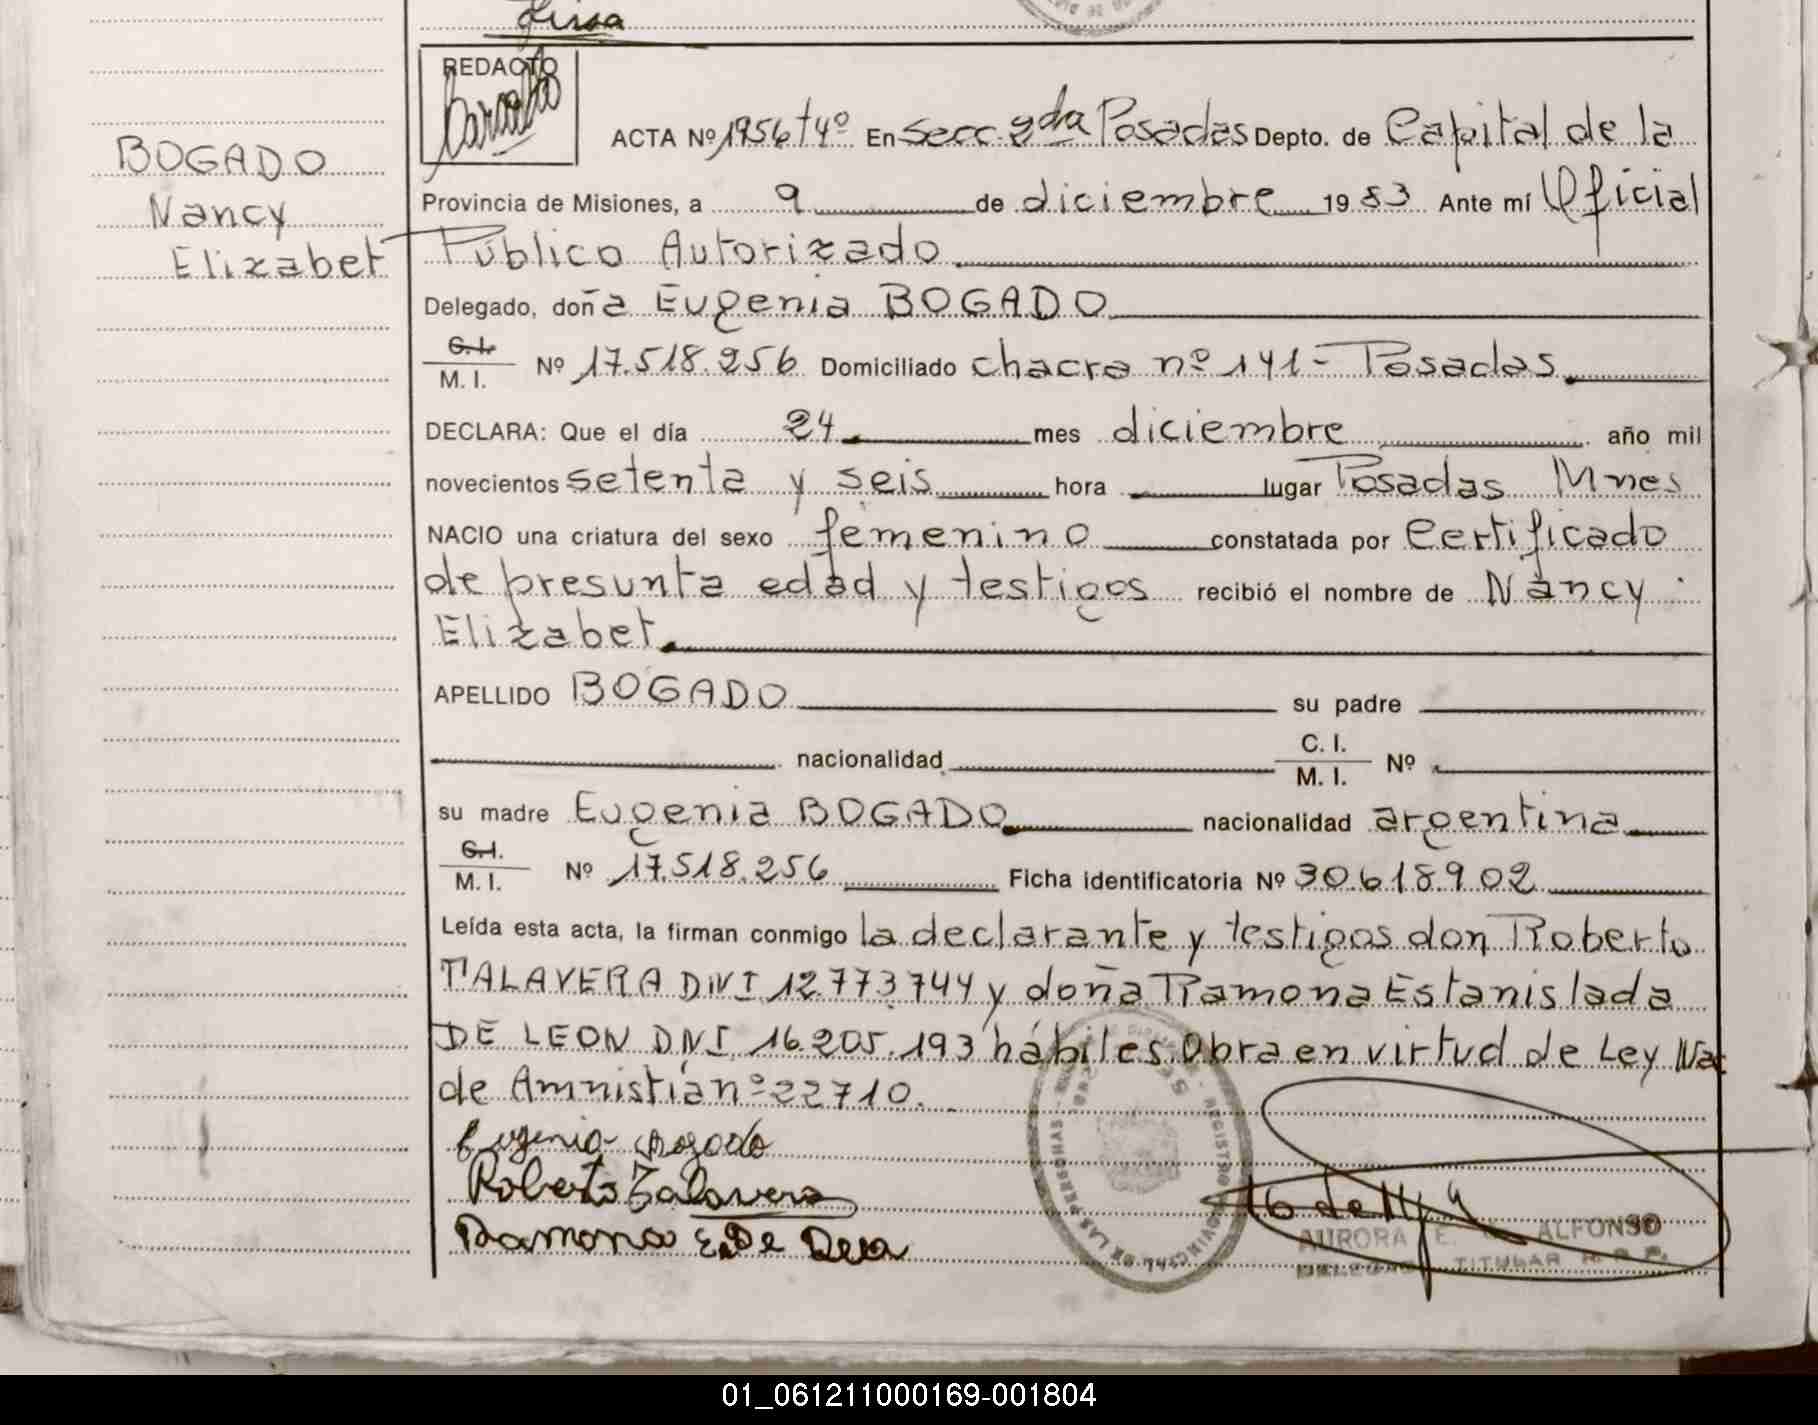 Firma
REDACTO
BOGADO
Nancy
Elizabet
ACTA Nº 1956 tº4º En Secc. 2da Posadas Depto. de Capital de la
Provincia de Misiones, a 9 de diciembre 1983 Ante mí Oficial
Público Autorizado
Delegado, doña Eugenia BOGADO
C. I.
M. I. Nº 17.518.256 Domiciliado chacra nº 141- Posadas
DECLARA: Que el día 24 mes diciembre año mil
novecientos setenta y seis hora lugar Posadas Mnes
NACIO una criatura del sexo femenino constatada por Certificado
de presunta edad y testigos recibió el nombre de Nancy
Elizabet
APELLIDO BOGADO su padre
nacionalidad C. I.
M. I. Nº
su madre Eugenia BOGADO nacionalidad argentina
C. I.
M. I. Nº 17.518.256 Ficha identificatoria Nº 30.618.902
Leída esta acta, la firman conmigo la declarante y testigos don Roberto
TALAVERA DNI 12.773.744 y doña Ramona Estanislada
DE LEON DNI 16.205.193 hábiles. Obra en virtud de Ley Nac
de Amnistía nº 22710.
Eugenia Bogado
Roberto Talavera
Ramona E. De
AURORA E. ALFONSO
DELEGADA TITULAR R. P. P.
01_061211000169-001804